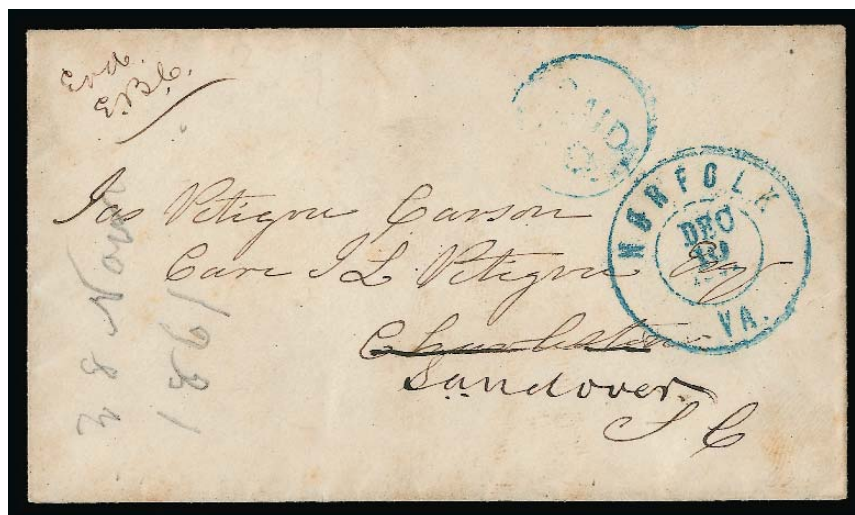 End.
E.B.C.
PAID
NORFOLK
DEC
VA.
Jas Petigru Carson
Care J L Petigru Esq
Charleston
Sandover
S C
28 Novr
1861